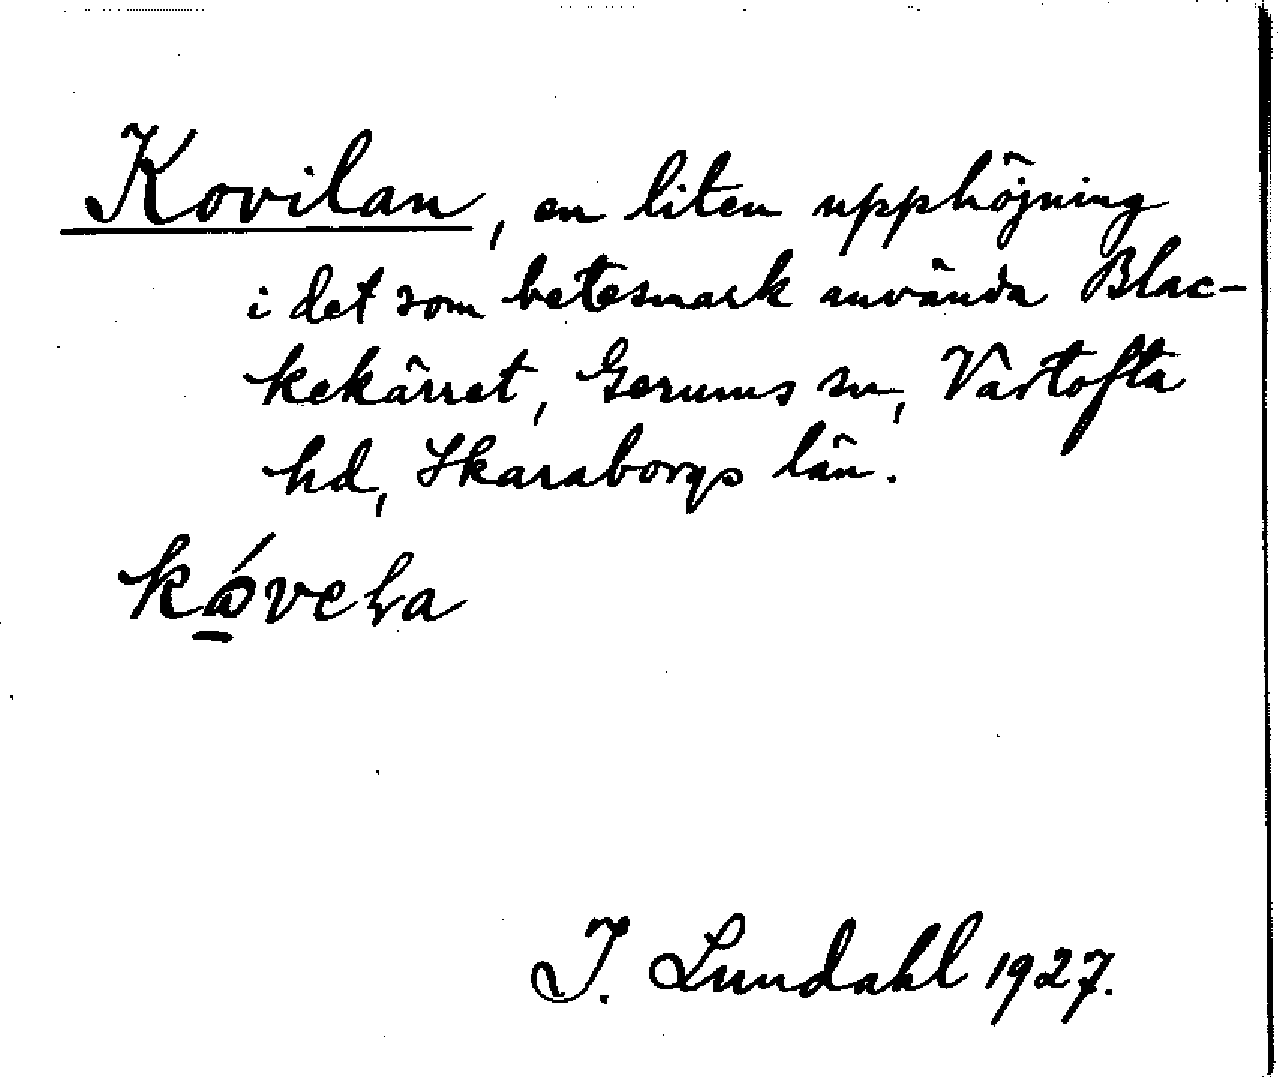 Kovilan, en liten upphöjning
i det som betesmark använda Blac-
kekärret, Gerums sn, Vartofta
hd, Skaraborgs län.
I. Lundahl 1927.